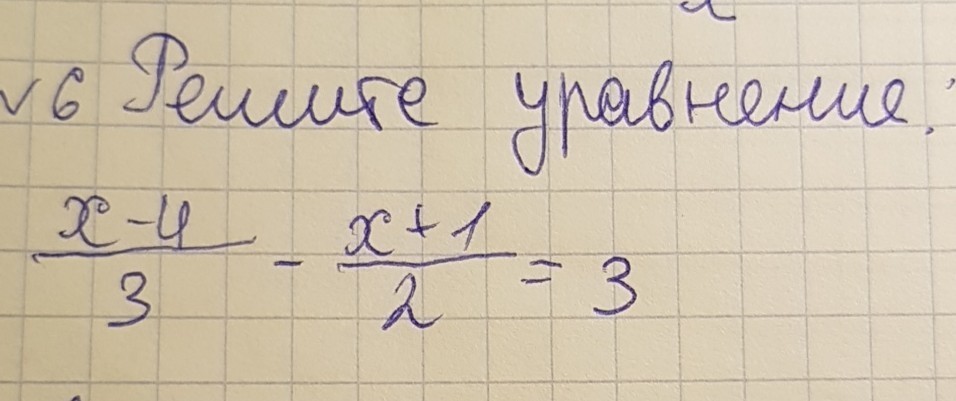 √6 Решите уравнение:
x-4/3 - x+1/2 = 3